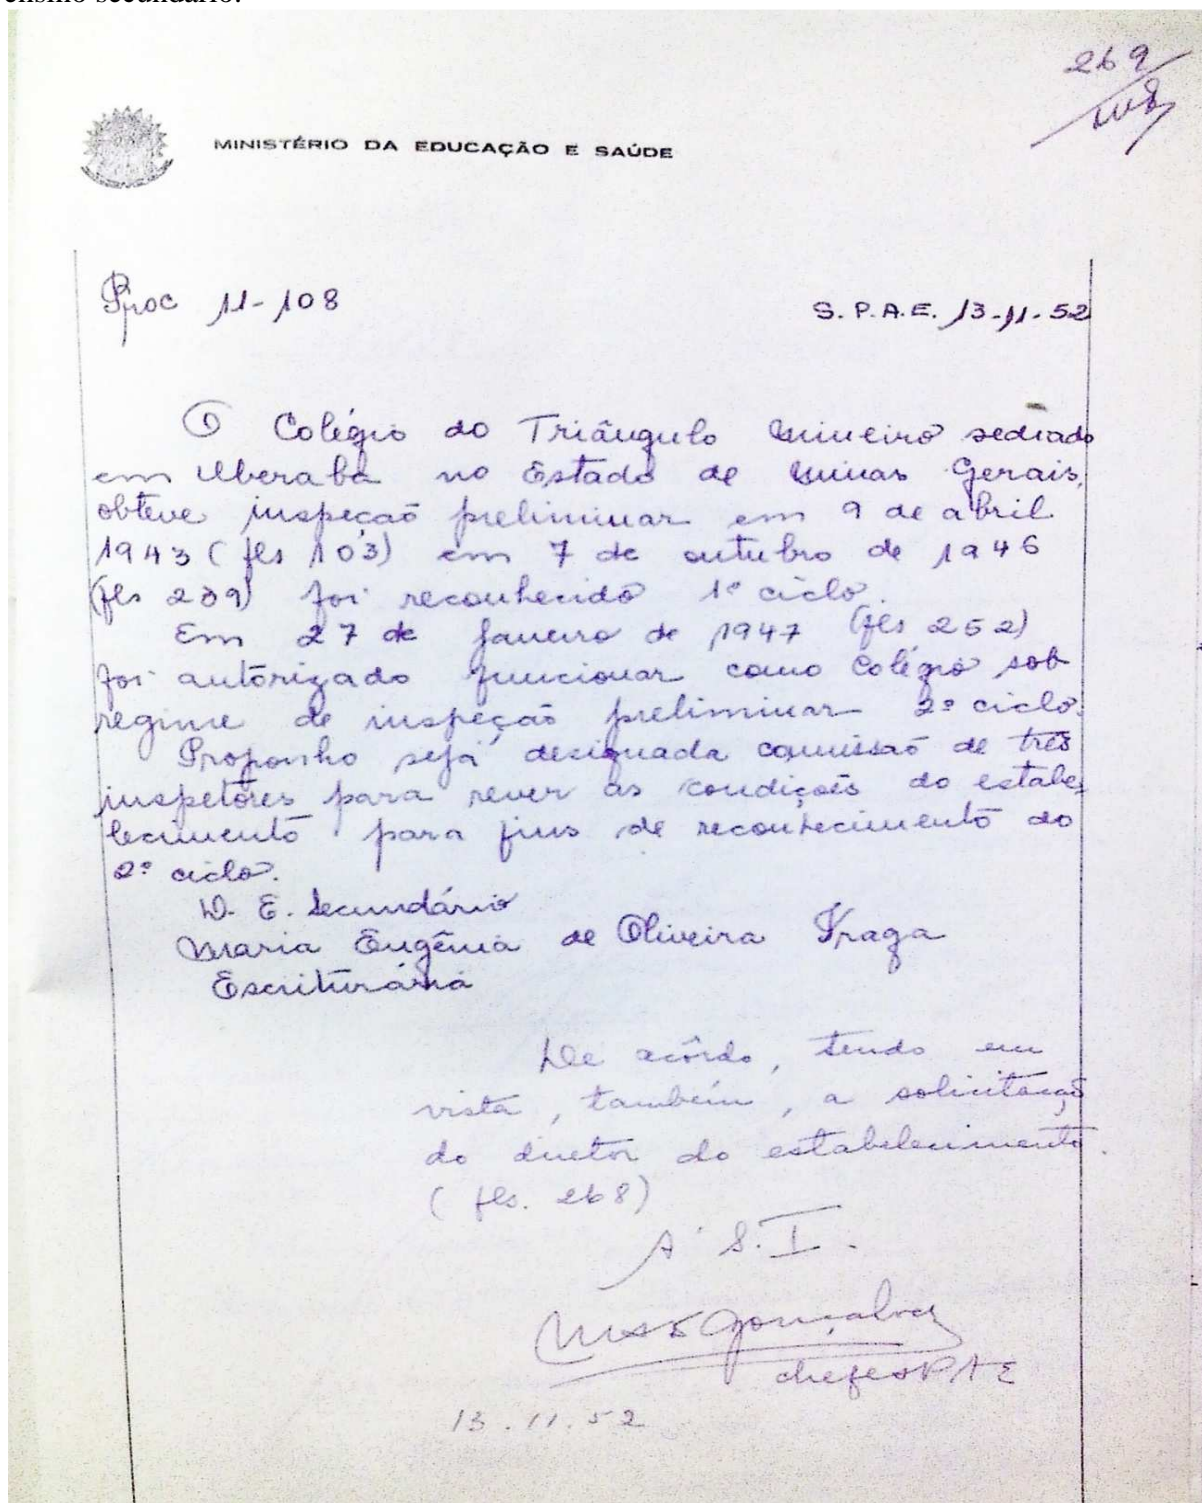 ensino secundário.
269
MINISTÉRIO DA EDUCAÇÃO E SAÚDE
Proc 11-108
S. P. A. E. 13-11-52
O Colégio do Triângulo Mineiro sediado
em Uberaba no Estado de Minas Gerais,
obteve inspeção preliminar em 9 de abril
1943 (fls 103) em 7 de outubro de 1946
(fls 239) foi reconhecido 1º ciclo.
Em 27 de janeiro de 1947 (fls 252)
foi autorizado funcionar como Colégio sob
regime de inspeção preliminar 2º ciclo.
Proponho seja designada comissão de três
inspetores para rever as condições do estabe-
lecimento para fins de reconhecimento do
2º ciclo.
D. E. Secundário
Maria Eugênia de Oliveira Fraga
Escriturária
De acôrdo, tendo em
vista, também, a solicitação
do diretor do estabelecimento.
(fls. 268)
A' S. I.
Gonçalves
chefe SPAE
13.11.52